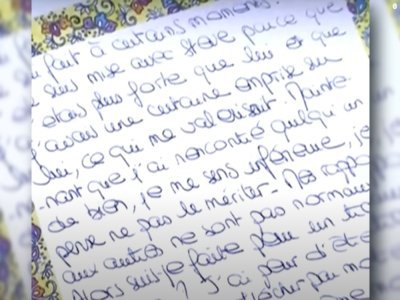 fait à certains moments.
suis mise avec Steve parce que
étais plus forte que lui et que
j'avais une certaine emprise sur
lui, ce qui me valorisait. Mainte-
nant que j'ai rencontré quelqu'un
de bien, je me sens inférieure, je
pense ne pas le mériter. Mes rappo
aux autres ne sont pas normaux
Alors suis-je faite pour un
? J'ai peur d'êt